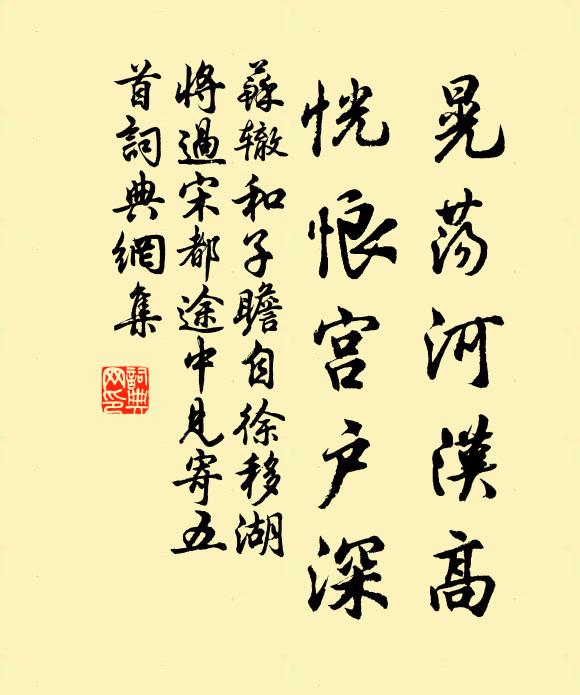 晃荡河漢高
恍悢宫户深
蘇辙和子瞻自徐移湖
將過宋都途中見寄五
首詞典網集
詞典網印